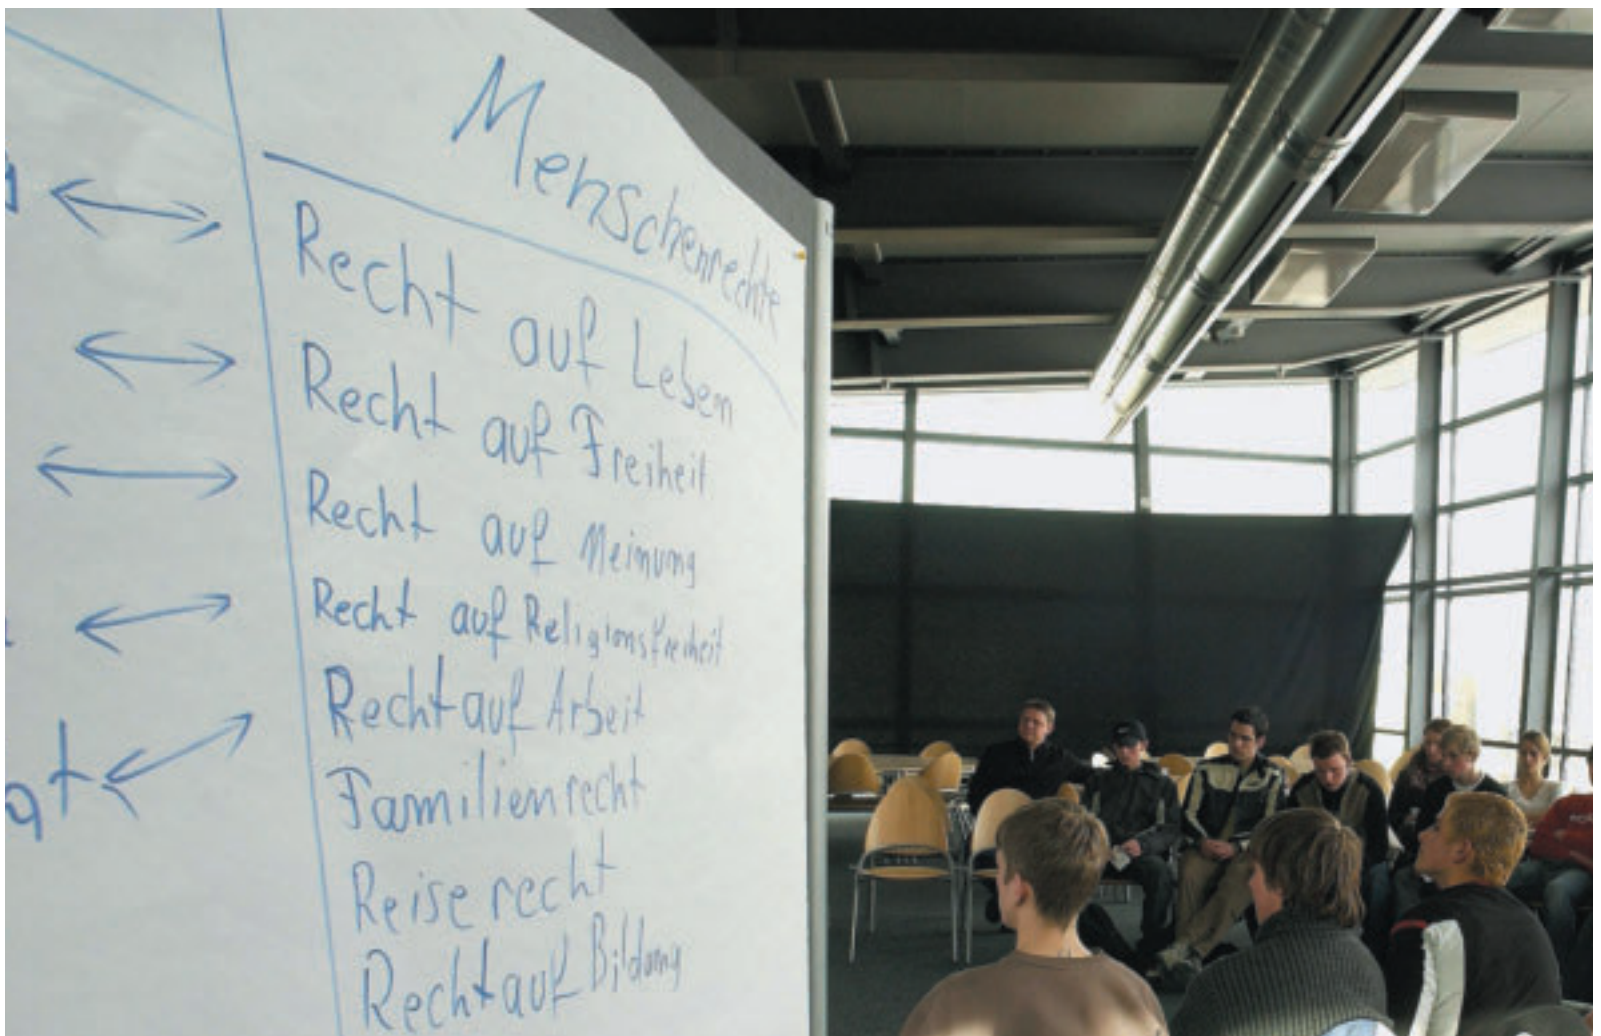 Menschenrechte
Recht auf Leben
Recht auf Freiheit
Recht auf Meinung
Recht auf Religionsfreiheit
Recht auf Arbeit
Familienrecht
Reiserecht
Recht auf Bildung